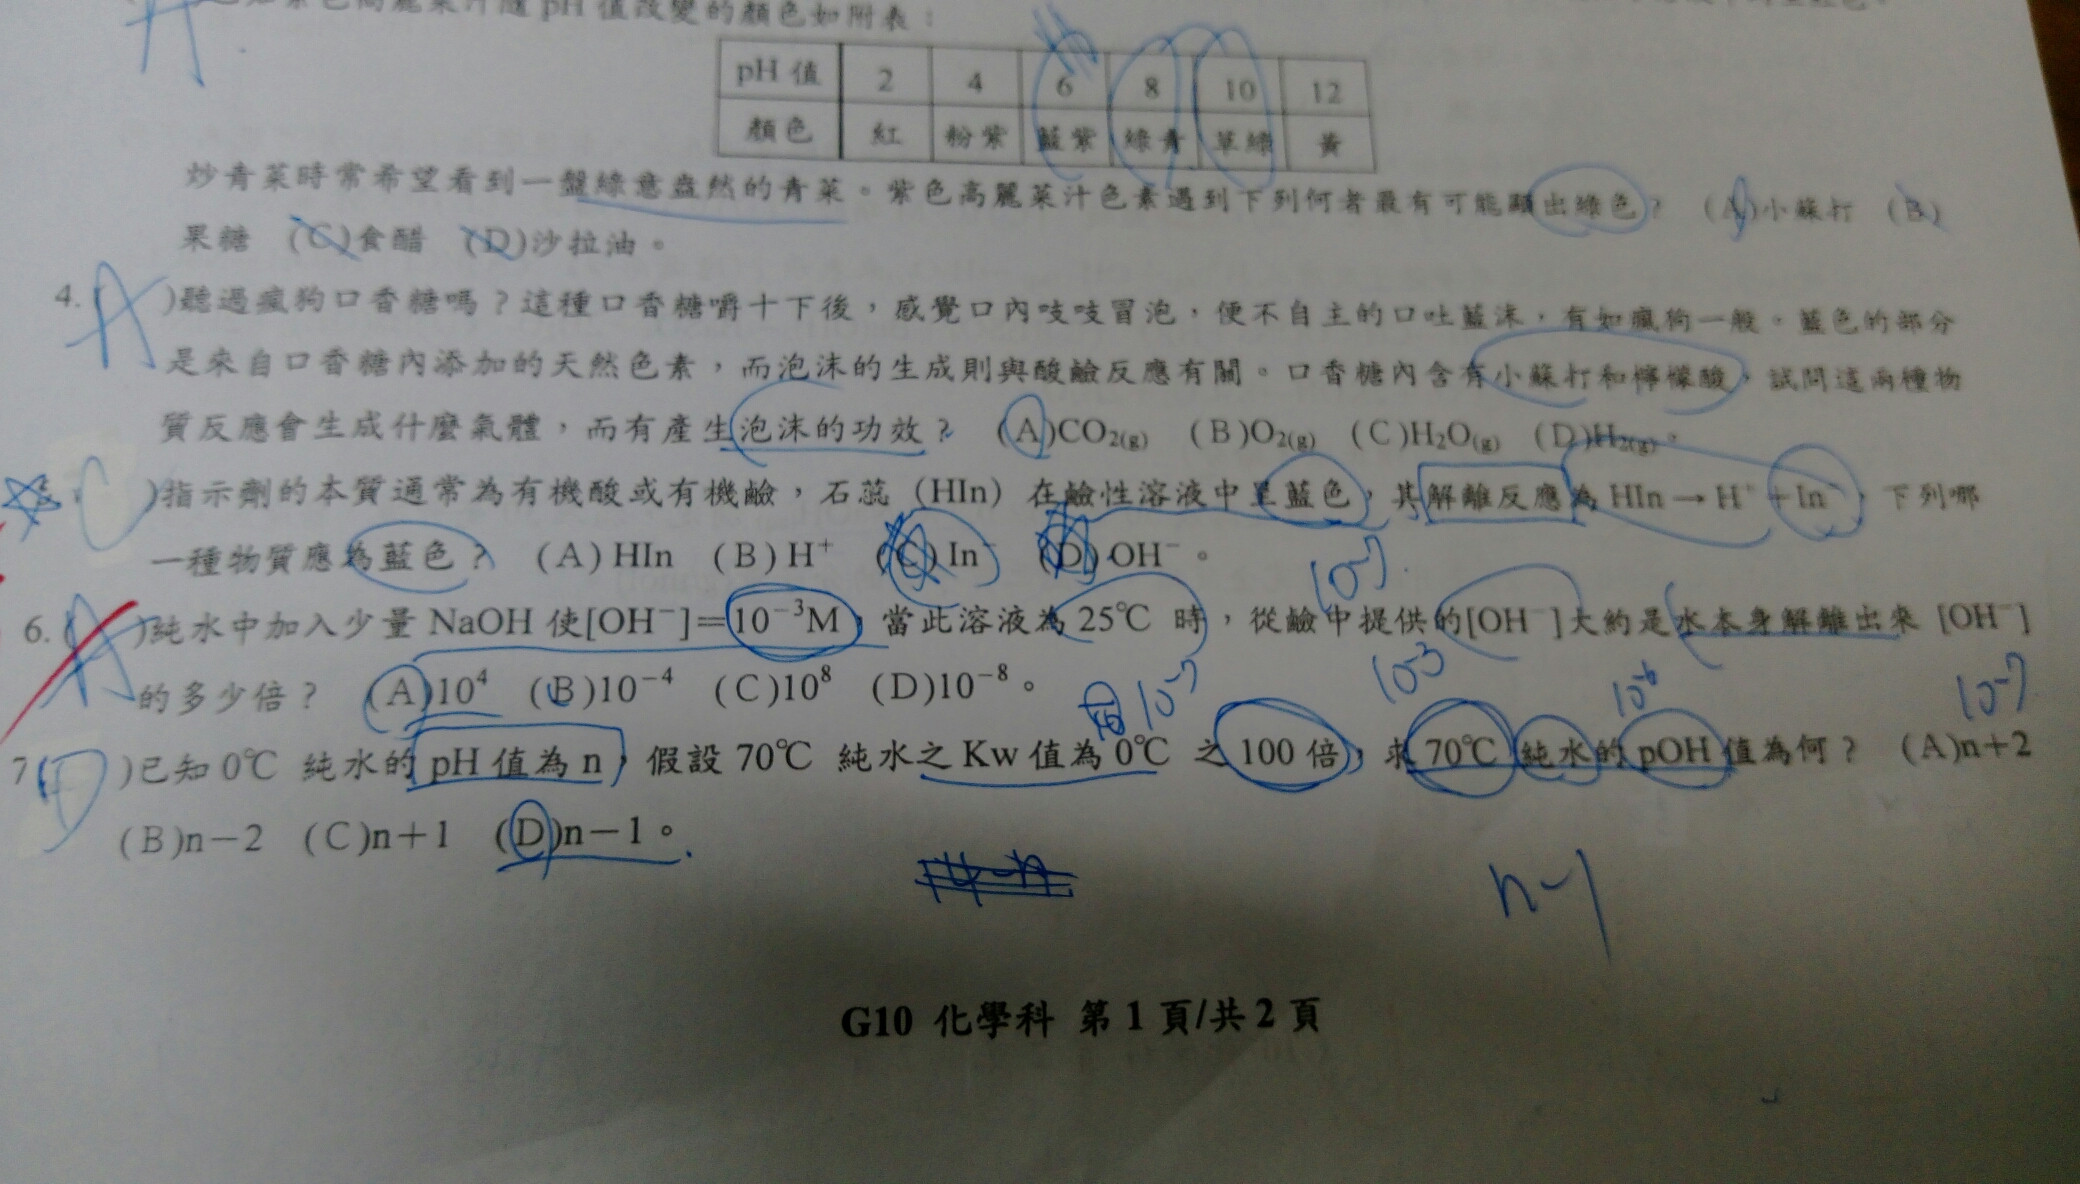 紫色高麗菜汁隨 pH 值改變的顏色如附表:
pH 值 2 4 6 8 10 12
顏色 紅 粉紫 藍紫 綠青 草綠 黃
炒青菜時常希望看到一盤綠意盎然的青菜。紫色高麗菜汁色素遇到下列何者最有可能顯出綠色? (A)小蘇打 (B)
果糖 (C)食醋 (D)沙拉油。
4. (A)聽過瘋狗口香糖嗎?這種口香糖嚼十下後,感覺口內吱吱冒泡,便不自主的口吐藍沫,有如瘋狗一般。藍色的部分
是來自口香糖內添加的天然色素,而泡沫的生成則與酸鹼反應有關。口香糖內含有小蘇打和檸檬酸,試問這兩種物
質反應會生成什麼氣體,而有產生泡沫的功效? (A)CO₂(g) (B)O₂(g) (C)H₂O(g) (D)H₂(g)。
C )指示劑的本質通常為有機酸或有機鹼,石蕊(HIn)在鹼性溶液中呈藍色,其解離反應為 HIn→H⁺+In⁻,下列哪
一種物質應為藍色? (A) HIn (B) H⁺ (C) In⁻ (D) OH⁻。
10⁻⁷
6. (A)純水中加入少量 NaOH 使[OH⁻]=10⁻³M,當此溶液為 25℃ 時,從鹼中提供的[OH⁻]大約是水本身解離出來 [OH⁻]
的多少倍? (A)10⁴ (B)10⁻⁴ (C)10⁸ (D)10⁻⁸。
10⁻⁷ 10⁻³ 10⁻⁶ 10⁻⁷
7 (D)已知 0℃ 純水的 pH 值為 n,假設 70℃ 純水之 Kw 值為 0℃ 之 100 倍,求 70℃ 純水的 pOH 值為何? (A)n+2
(B)n−2 (C)n+1 (D)n−1。
n-1
G10 化學科 第 1 頁/共 2 頁